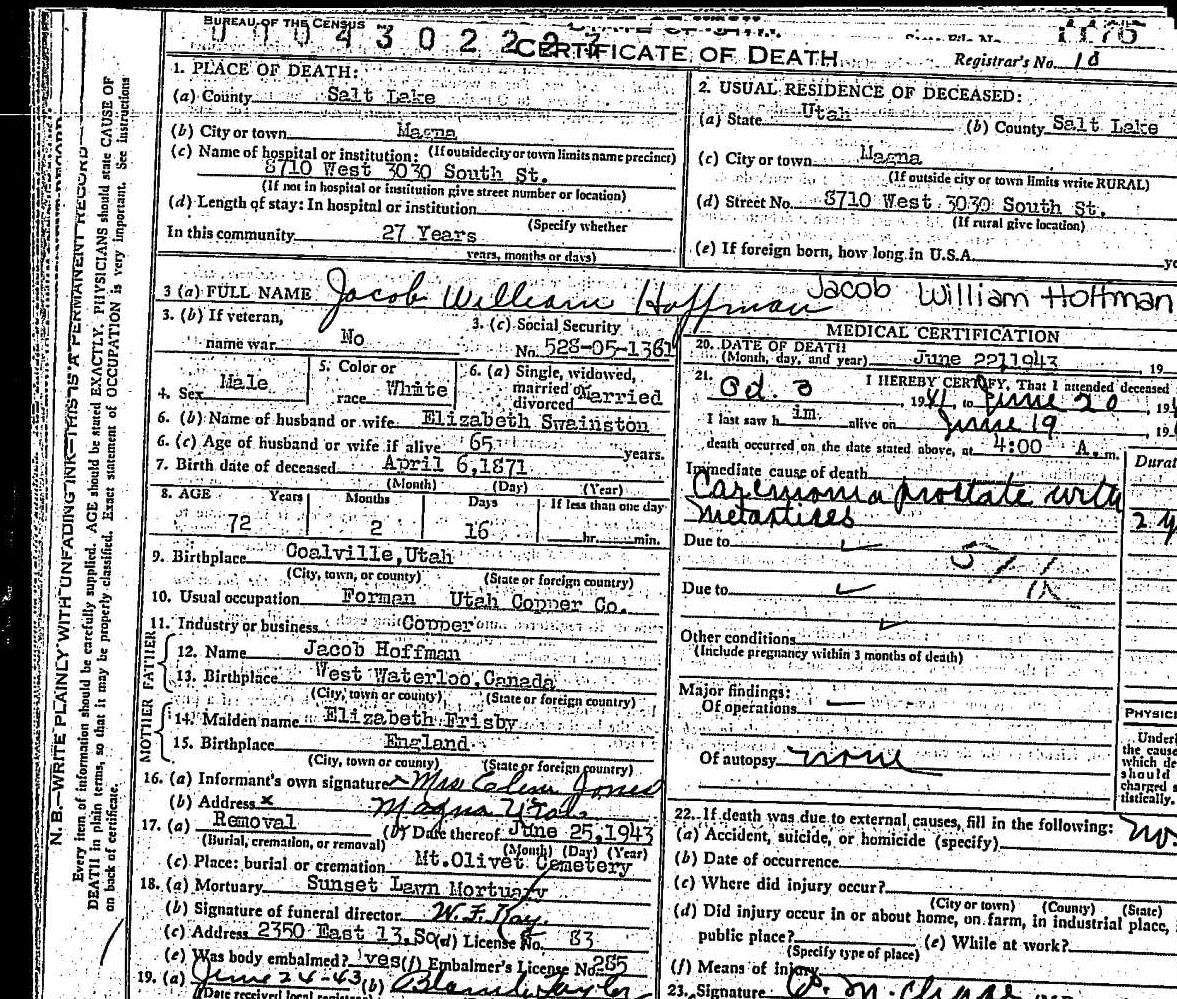 BUREAU OF THE CENSUS
1176
CERTIFICATE OF DEATH
Registrar's No. 18
1. PLACE OF DEATH:
(a) County Salt Lake
(b) City or town Magna
(If outside city or town limits name precinct)
(c) Name of hospital or institution:
8710 West 3030 South St.
(If not in hospital or institution give street number or location)
(d) Length of stay: In hospital or institution
(Specify whether
In this community 27 Years
years, months or days)
2. USUAL RESIDENCE OF DECEASED:
(a) State Utah (b) County Salt Lake
(c) City or town Magna
(If outside city or town limits write RURAL)
(d) Street No. 8710 West 3030 South St.
(If rural give location)
(e) If foreign born, how long in U.S.A.
3 (a) FULL NAME Jacob William Hoffman Jacob William Hoffman
3. (b) If veteran,
name war No
3. (c) Social Security
No. 528-05-1361
4. Sex Male
5. Color or
race White
6. (a) Single, widowed,
married or
divorced Married
6. (b) Name of husband or wife Elizabeth Swainston
6. (c) Age of husband or wife if alive 65 years.
7. Birth date of deceased April 6,1871
(Month) (Day) (Year)
8. AGE Years Months Days If less than one day
72 2 16 hr. min.
9. Birthplace Coalville,Utah
(City, town, or county) (State or foreign country)
10. Usual occupation Forman Utah Copper Co.
11. Industry or business Copper
FATHER
12. Name Jacob Hoffman
13. Birthplace West Waterloo,Canada
(City, town or county) (State or foreign country)
MOTHER
14. Maiden name Elizabeth Frisby
15. Birthplace England
(City, town or county) (State or foreign country)
16. (a) Informant's own signature x Mrs Jones
(b) Address x Magna Utah
17. (a) Removal (b) Date thereof June 25,1943
(Burial, cremation, or removal) (Month) (Day) (Year)
(c) Place: burial or cremation Mt.Olivet Cemetery
18. (a) Mortuary Sunset Lawn Mortuary
(b) Signature of funeral director W. F. Kay
(c) Address 2350 East 13.So (d) License No. 83
(e) Was body embalmed? yes (f) Embalmer's License No. 285
19. (a) June 24-43 (b) Taylor
(Date received local
MEDICAL CERTIFICATION
20. DATE OF DEATH
(Month, day, and year) June 22 1943 19
21. I HEREBY CERTIFY, That I attended deceased
Oct. 8 1941 to June 20, 19
I last saw him alive on June 19, 19
death occurred on the date stated above, at 4:00 A. m.
Immediate cause of death
prostate with
2 y
Due to
51
Due to
Other conditions
(Include pregnancy within 3 months of death)
Major findings:
Of operations
Of autopsy none
PHYSICI
Underl
the cause
which de
should
charged s
tistically.
22. If death was due to external causes, fill in the following: no.
(a) Accident, suicide, or homicide (specify)
(b) Date of occurrence
(c) Where did injury occur?
(City or town) (County) (State)
(d) Did injury occur in or about home, on farm, in industrial place,
public place? (e) While at work?
(Specify type of place)
(f) Means of injury
23. Signature
N. B.—WRITE PLAINLY WITH UNFADING INK—THIS IS A PERMANENT RECORD
Every item of information should be carefully supplied. AGE should be stated EXACTLY. PHYSICIANS should state CAUSE OF
DEATH in plain terms, so that it may be properly classified. Exact statement of OCCUPATION is very important. See instructions
on back of certificate.